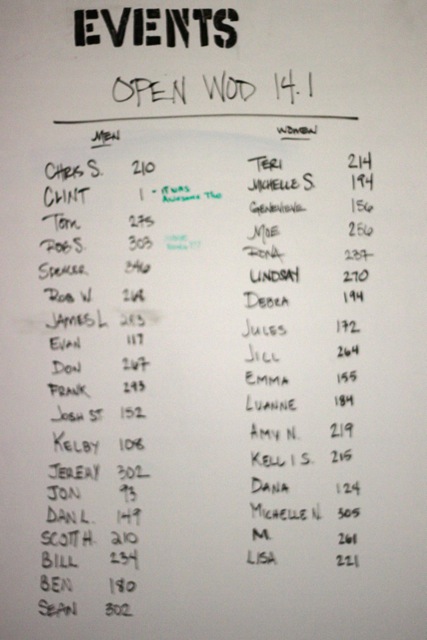 EVENTS
OPEN WOD 14.1
MEN
CHRIS S. 210
CLINT 1 - IT WAS AWESOME THO
Tom 275
ROB S. 303
Spencer 346
ROB W. 268
JAMES L 283
EVAN 117
DON 267
FRANK 293
JOSH ST 152
KELBY 108
JEREMY 302
JON 93
DAN L. 149
SCOTT H. 210
BILL 234
BEN 180
SEAN 302
WOMEN
TERI 214
MICHELLE S. 194
GENEVIEVE 156
MOE 256
RONA 237
LINDSAY 270
DEBRA 194
JULES 172
JILL 264
EMMA 155
LUANNE 184
AMY N. 219
KELLI S. 215
DANA 124
MICHELLE N. 305
M. 261
LISA 221